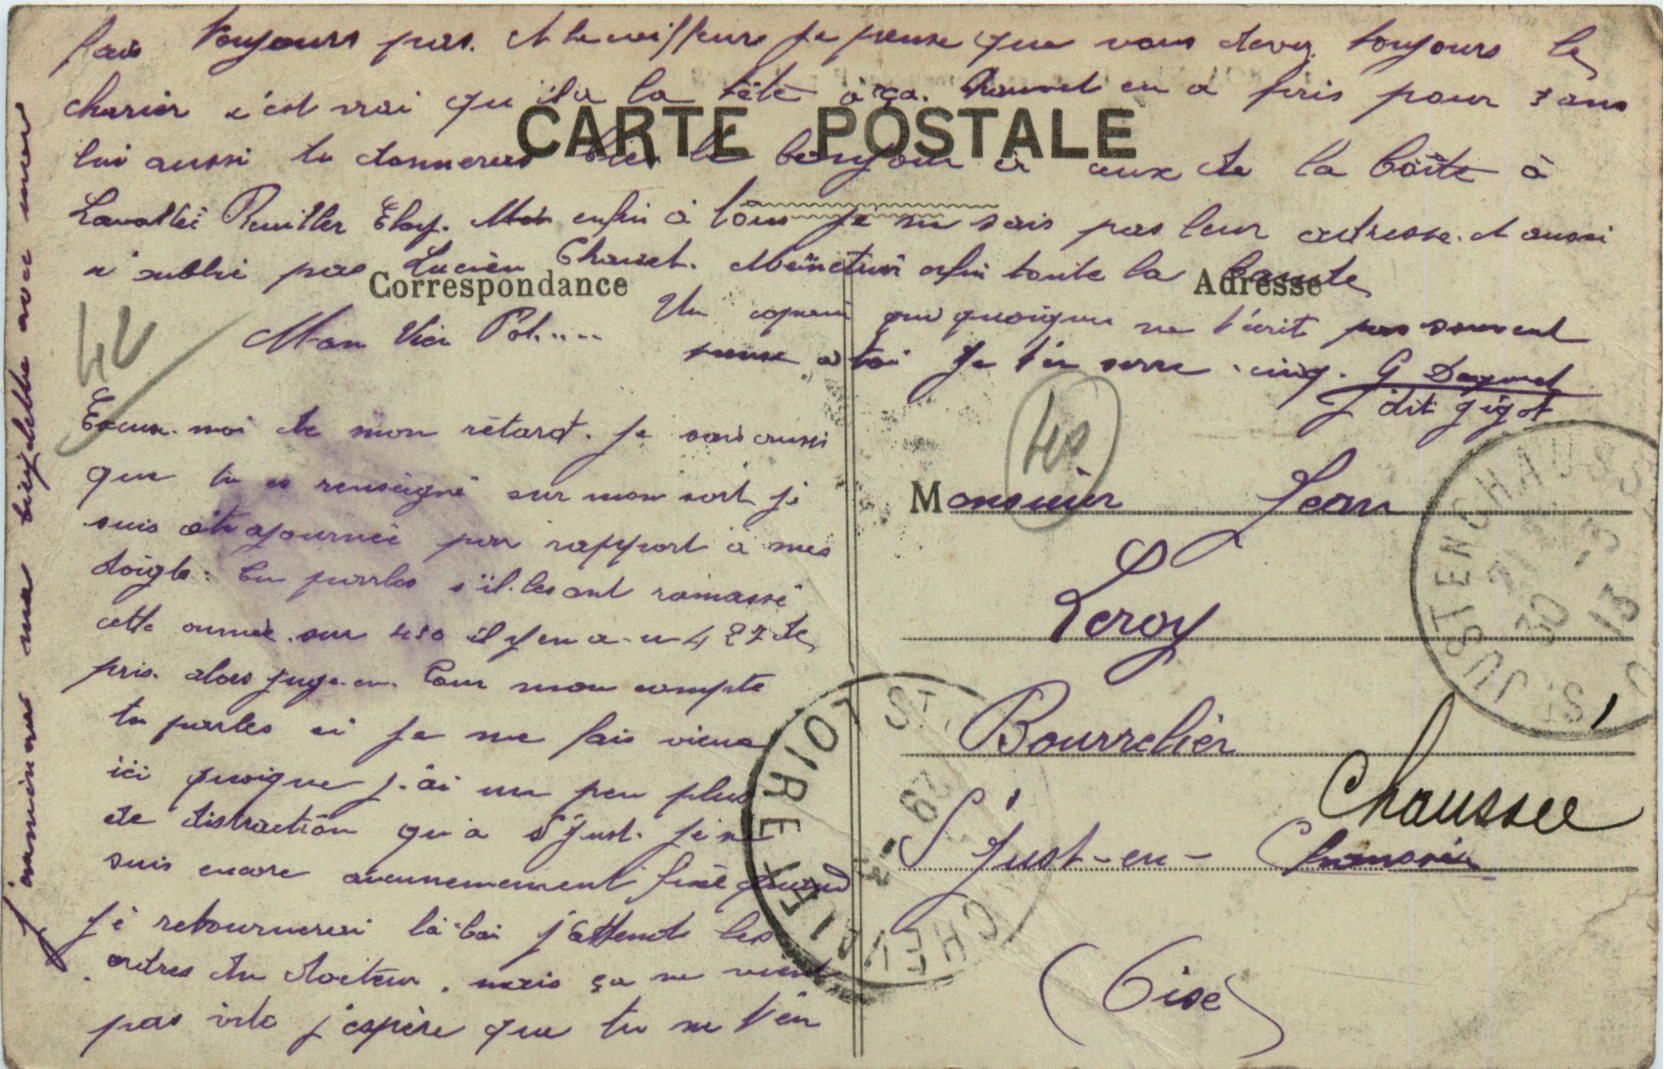 fais toujours pas. et le coiffeur je pense que vous devez toujours le
charier c'est vrai qu'il a la tête à ça. Chauvet en a pris pour 3 ans
lui aussi tu donneras bien le bonjour à ceux de la boîte à
Lavallé Eloy. enfin à tous je ne sais pas leur adresse. et aussi
n'oublie pas Lucien enfin toute la bande
CARTE POSTALE
Correspondance
Adresse
Un copain qui quoique ne t'écrit pas souvent
pense à toi Je t'en serre cinq. G
dit gigot
Mon Vieu Pol.....
Excuse-moi de mon rétard. Je sais aussi
que tu es renseigné sur mon sort je
suis été ajournée par rapport à mes
doigts: tu parles s'il les ont ramassé
cette année. sur 450 il y en a eu 427 de
pris. alors juge-en. Pour mon compte
tu parles si je me fais vieux
ici quoique j'ai un peu plus
de distraction qu'a St Just. Je ne
suis encore aucunemement fixé quand
je retournerai là-bas j'attends les
ordres du docteur. mais ça ne vient
pas vite j'espère que tu ne t'en
j'oublie ma bicyclette avec moi
Monsieur Jean
Leroy
Bourrelier
St Just-en-
Chaussee
(Oise)
ST JUST EN CHAUSSEE
30 -3 13
LOIRE
29 -3